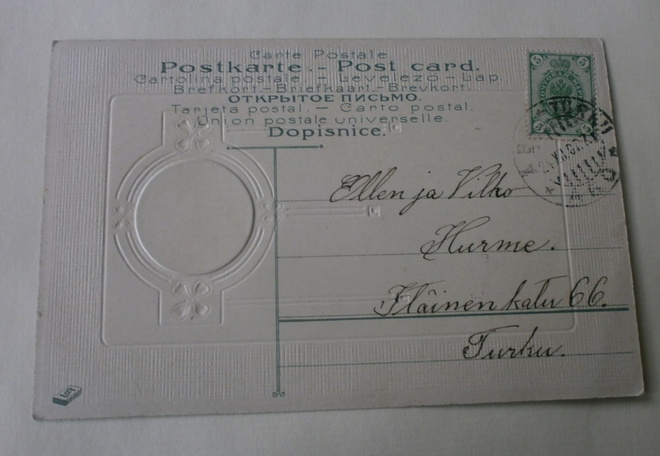 Carte Postale
Postkarte.- Post card.
Cartolina postale. - Levelezo-Lap
Brefkort - Briefkaart - Brevkort.
ОТКРЫТОЕ ПИСЬМО.
Tarjeta postal. - Carto postal.
Union postale universelle.
Dopisnice.
5 5
Ellen ja Vilho
Hurme.
Itäinenkatu 66.
Turku.